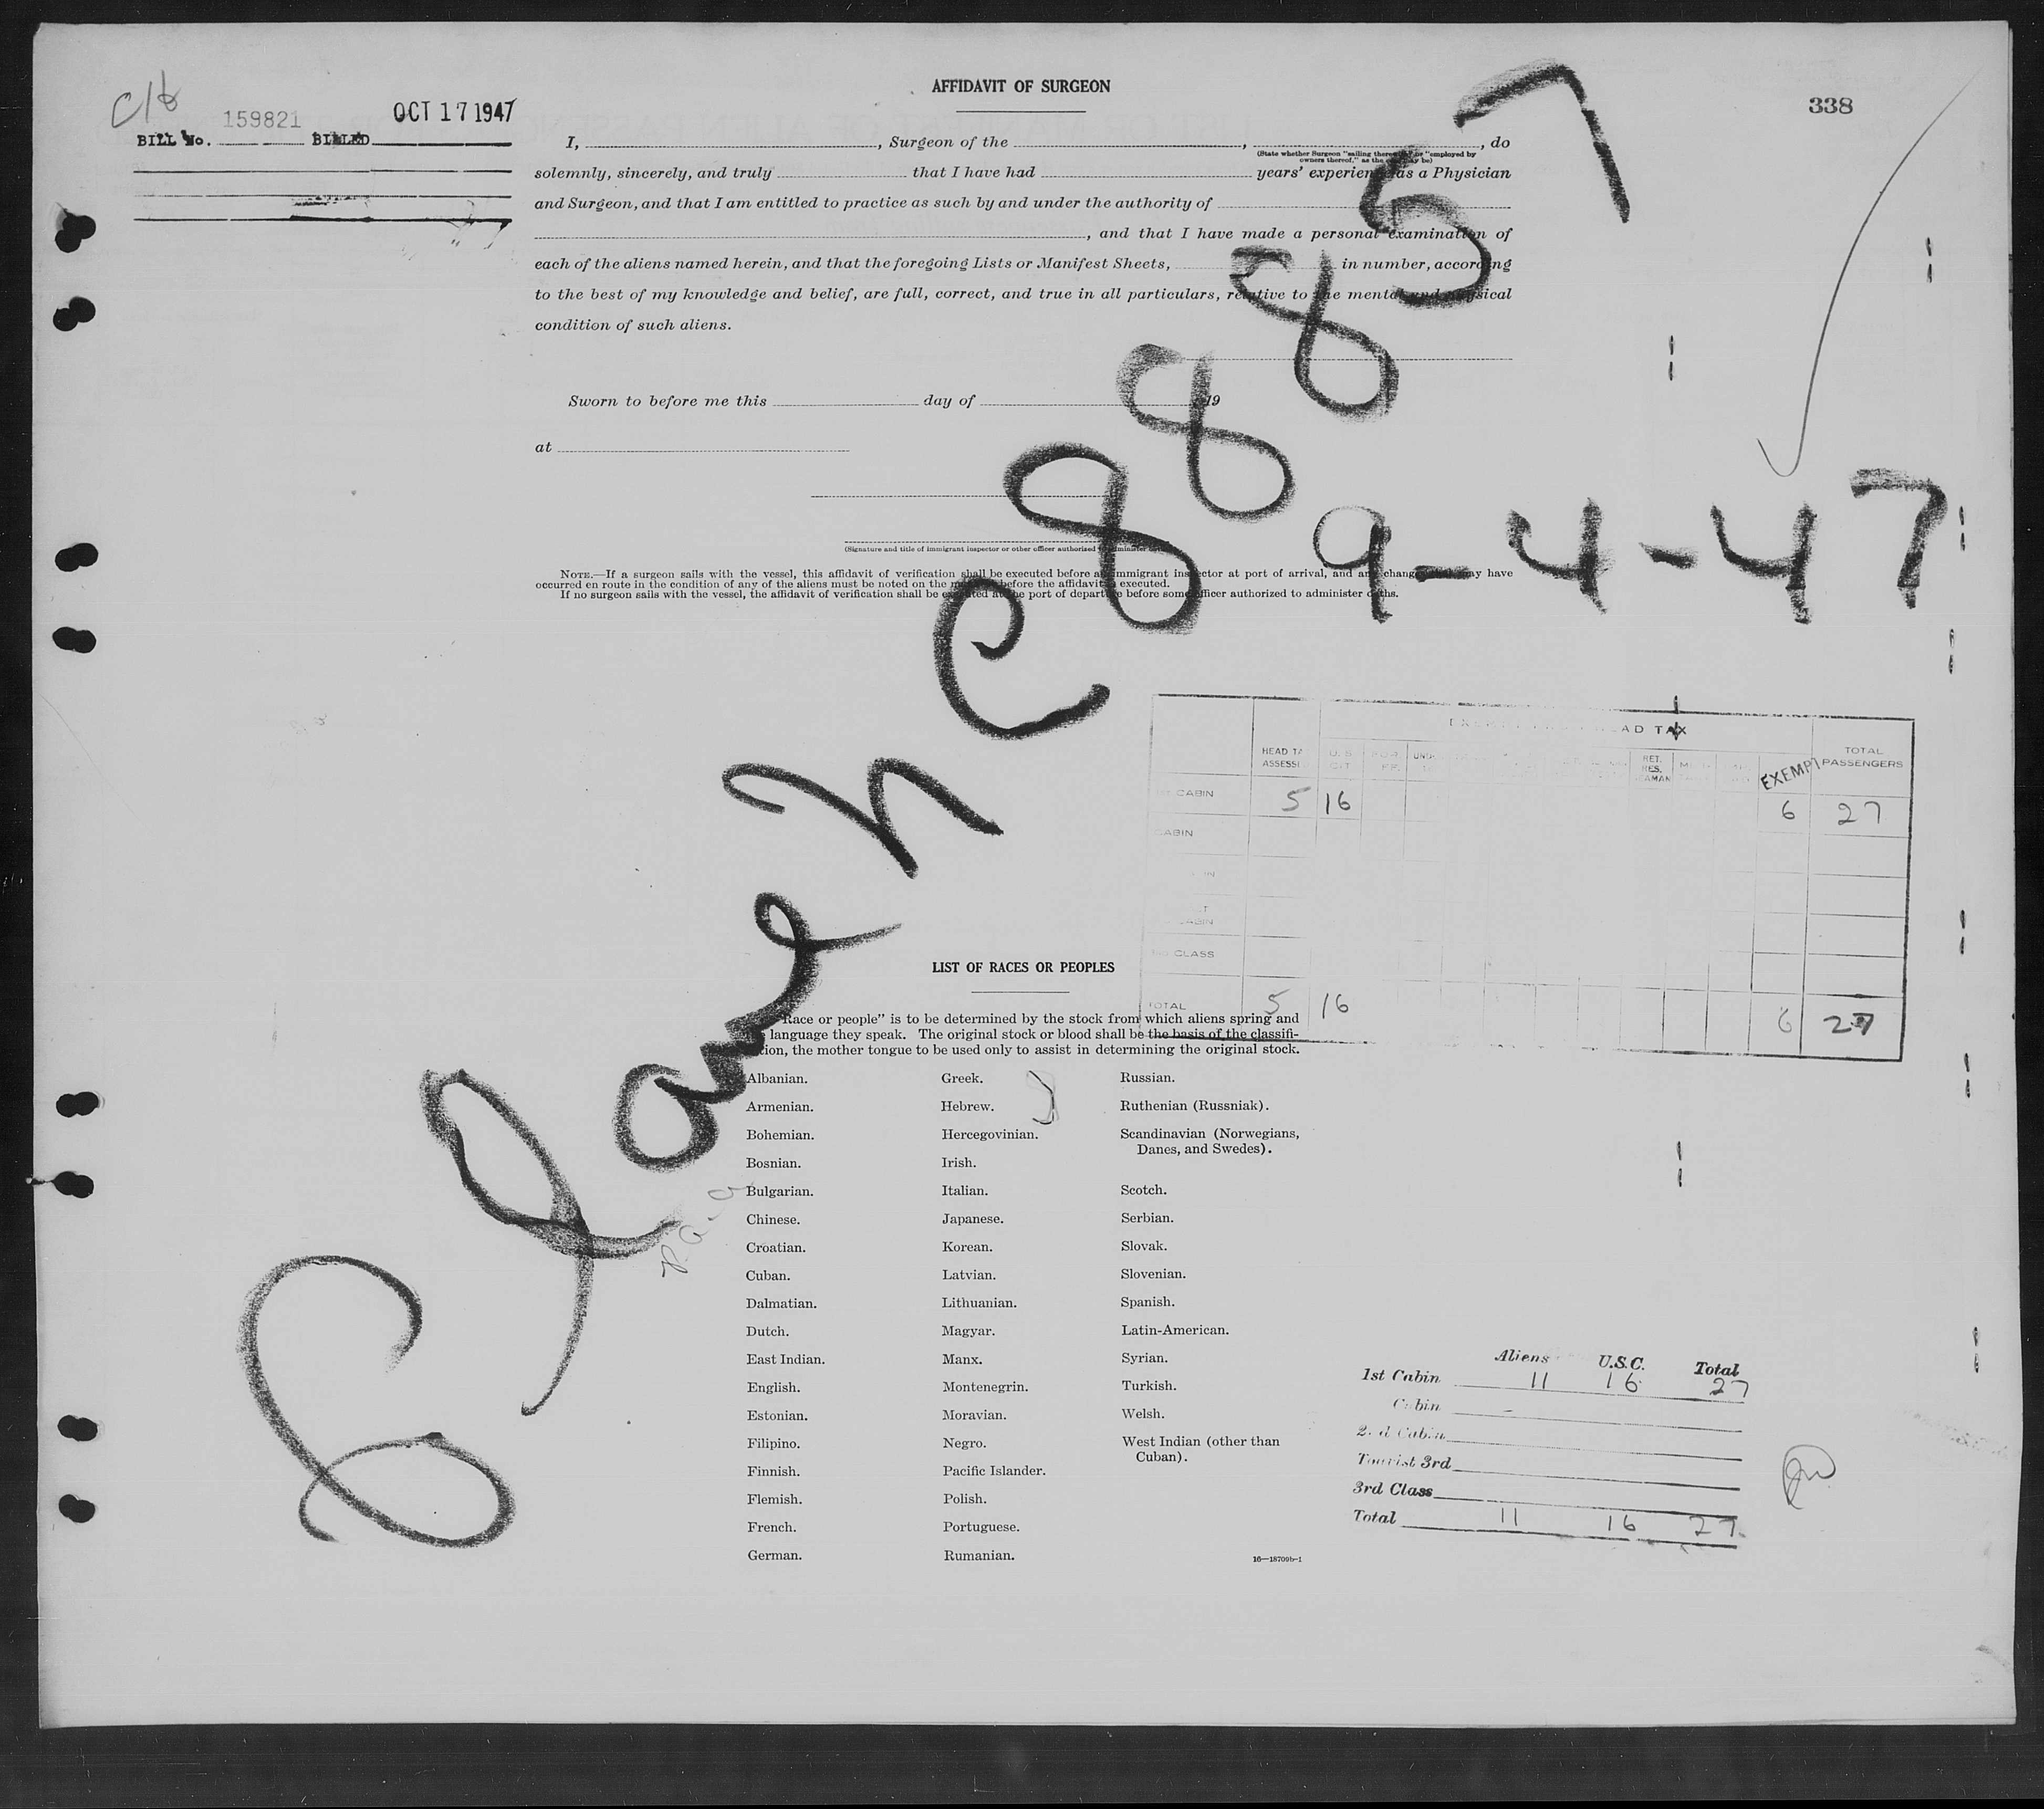 AFFIDAVIT OF SURGEON
338
C/b
BILL No. 159821 BILLED OCT 17 1947
I, , Surgeon of the , , do
(State whether Surgeon "sailing therewith" or "employed by
owners thereof," as the case may be)
solemnly, sincerely, and truly that I have had years' experience as a Physician
and Surgeon, and that I am entitled to practice as such by and under the authority of
, and that I have made a personal examination of
each of the aliens named herein, and that the foregoing Lists or Manifest Sheets, in number, according
to the best of my knowledge and belief, are full, correct, and true in all particulars, relative to the mental and physical
condition of such aliens.
Sworn to before me this day of , 19
at
(Signature and title of immigrant inspector or other officer authorized to administer oaths)
NOTE.—If a surgeon sails with the vessel, this affidavit of verification shall be executed before an immigrant inspector at port of arrival, and any change may have
occurred en route in the condition of any of the aliens must be noted on the manifest before the affidavit is executed.
If no surgeon sails with the vessel, the affidavit of verification shall be executed at the port of departure before some officer authorized to administer oaths.
Plane NC 88857
9-4-47
EXEMPT FROM HEAD TAX
HEAD TAX ASSESSED U.S. CIT. RET. RES. SEAMAN EXEMPT TOTAL PASSENGERS
1st CABIN 5 16 6 27
CABIN
CABIN
3rd CLASS
TOTAL 5 16 6 27
LIST OF RACES OR PEOPLES
"Race or people" is to be determined by the stock from which aliens spring and
the language they speak. The original stock or blood shall be the basis of the classifi-
cation, the mother tongue to be used only to assist in determining the original stock.
Albanian. Greek. Russian.
Armenian. Hebrew. Ruthenian (Russniak).
Bohemian. Hercegovinian. Scandinavian (Norwegians,
Danes, and Swedes).
Bosnian. Irish.
Bulgarian. Italian. Scotch.
Chinese. Japanese. Serbian.
Croatian. Korean. Slovak.
Cuban. Latvian. Slovenian.
Dalmatian. Lithuanian. Spanish.
Dutch. Magyar. Latin-American.
East Indian. Manx. Syrian.
English. Montenegrin. Turkish.
Estonian. Moravian. Welsh.
Filipino. Negro. West Indian (other than
Cuban).
Finnish. Pacific Islander.
Flemish. Polish.
French. Portuguese.
German. Rumanian.
16—18709b-1
Aliens U.S.C. Total
1st Cabin 11 16 27
Cabin
2nd Cabin
Tourist 3rd
3rd Class
Total 11 16 27